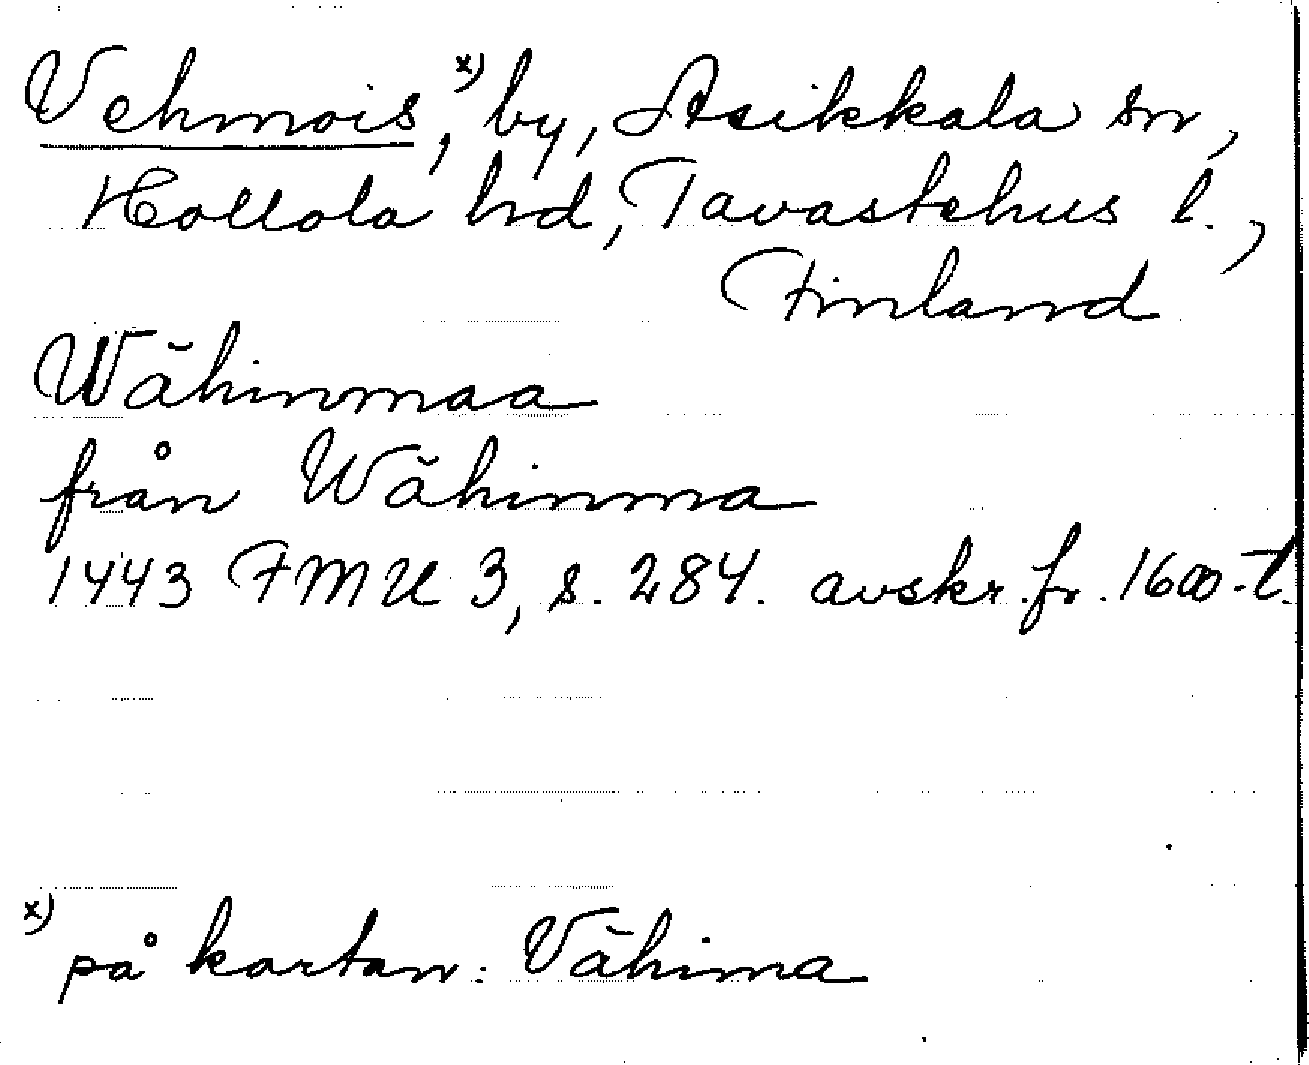 Vehmois, x) by, Asikkala sn,
Hollola hd, Tavastehus l.,
Finland
Wähinmaa
från Wähinma
1443 FMU 3, s. 284. avskr. fr. 1600-t.
x) på kartan: Vähima